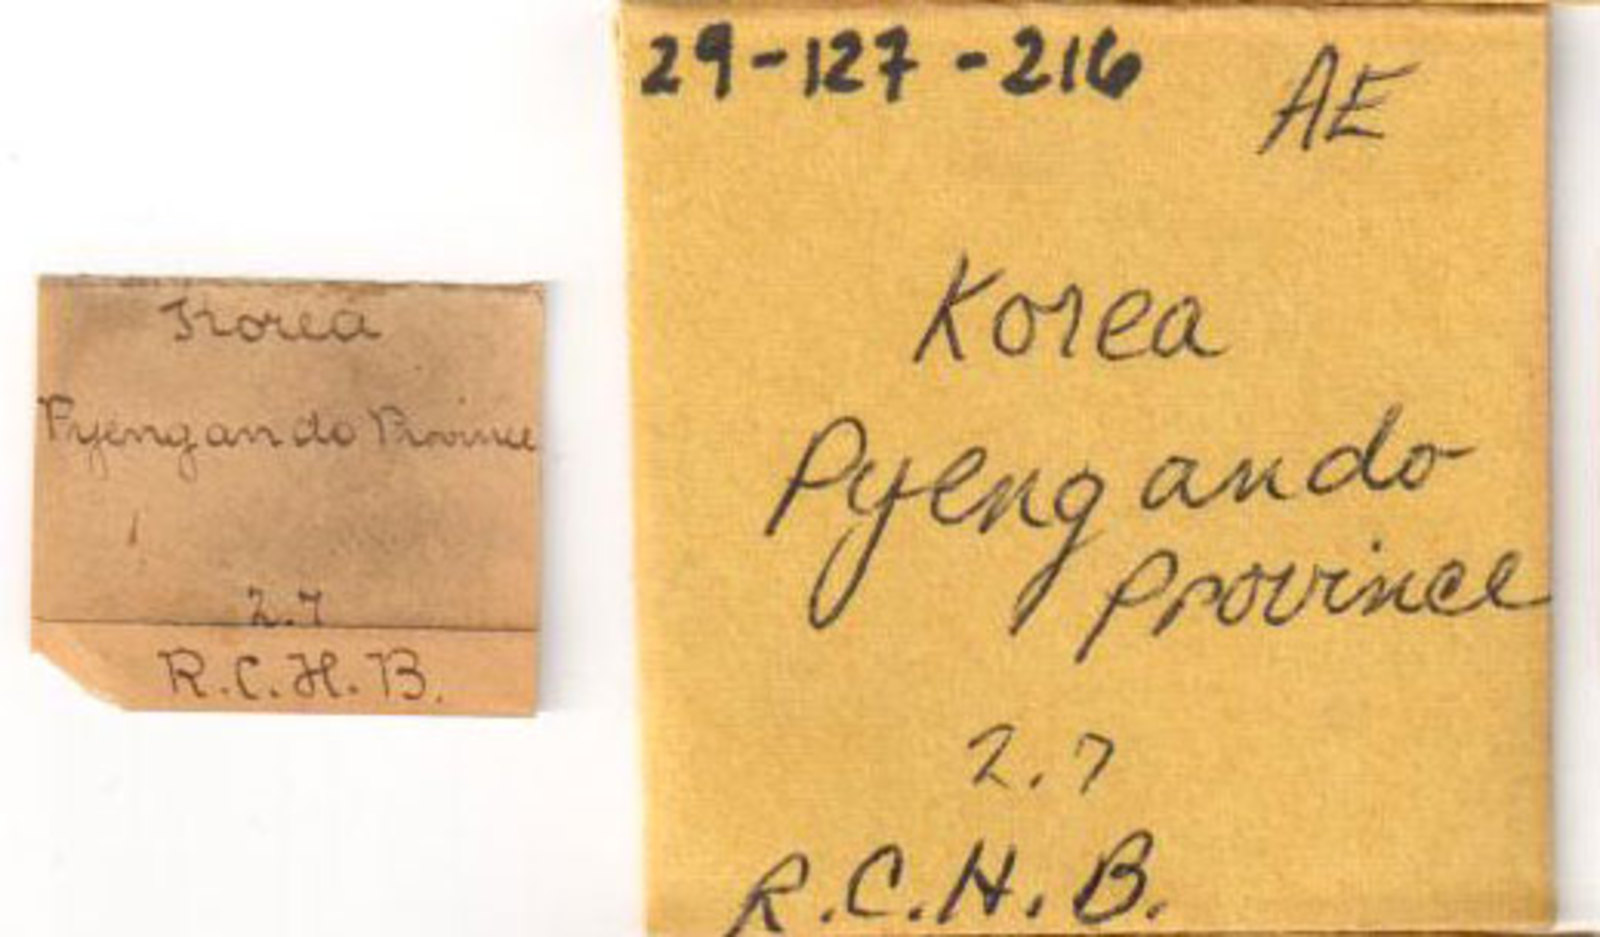 Korea
Pyeng an do Province
2.7
R.C.H.B.
29-127-216
AE
Korea
Pyeng an do
Province
2.7
R.C.H.B.